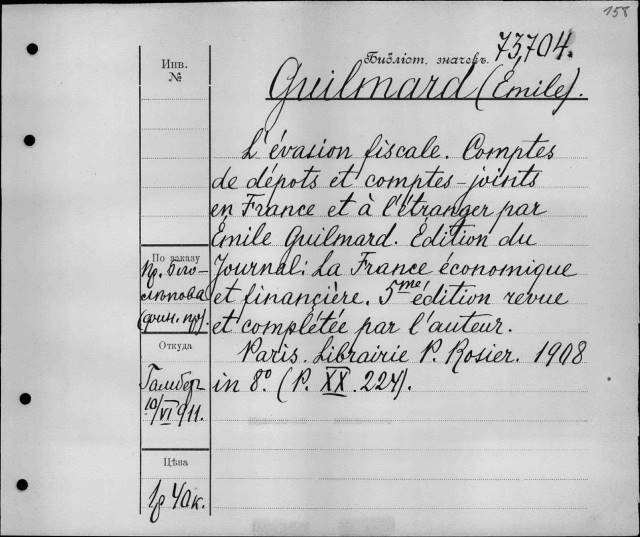 158
Библіот. значекъ. 73,704.
Инв.
№
Guilmard (Émile).
L'évasion fiscale. Comptes
de dépots et comptes-joints
en France et à l'étranger par
Émile Guilmard. Edition du
Journal: La France économique
et financière. 5me édition revue
et complétée par l'auteur.
Paris. Librairie P. Rosier. 1908
in 8º. (P. XX. 224).
По заказу
Пр. Бѣло-
лѣпова
(фин. пр.).
Откуда
Гамбер
10/VI 911.
Цѣна
1р 40к.